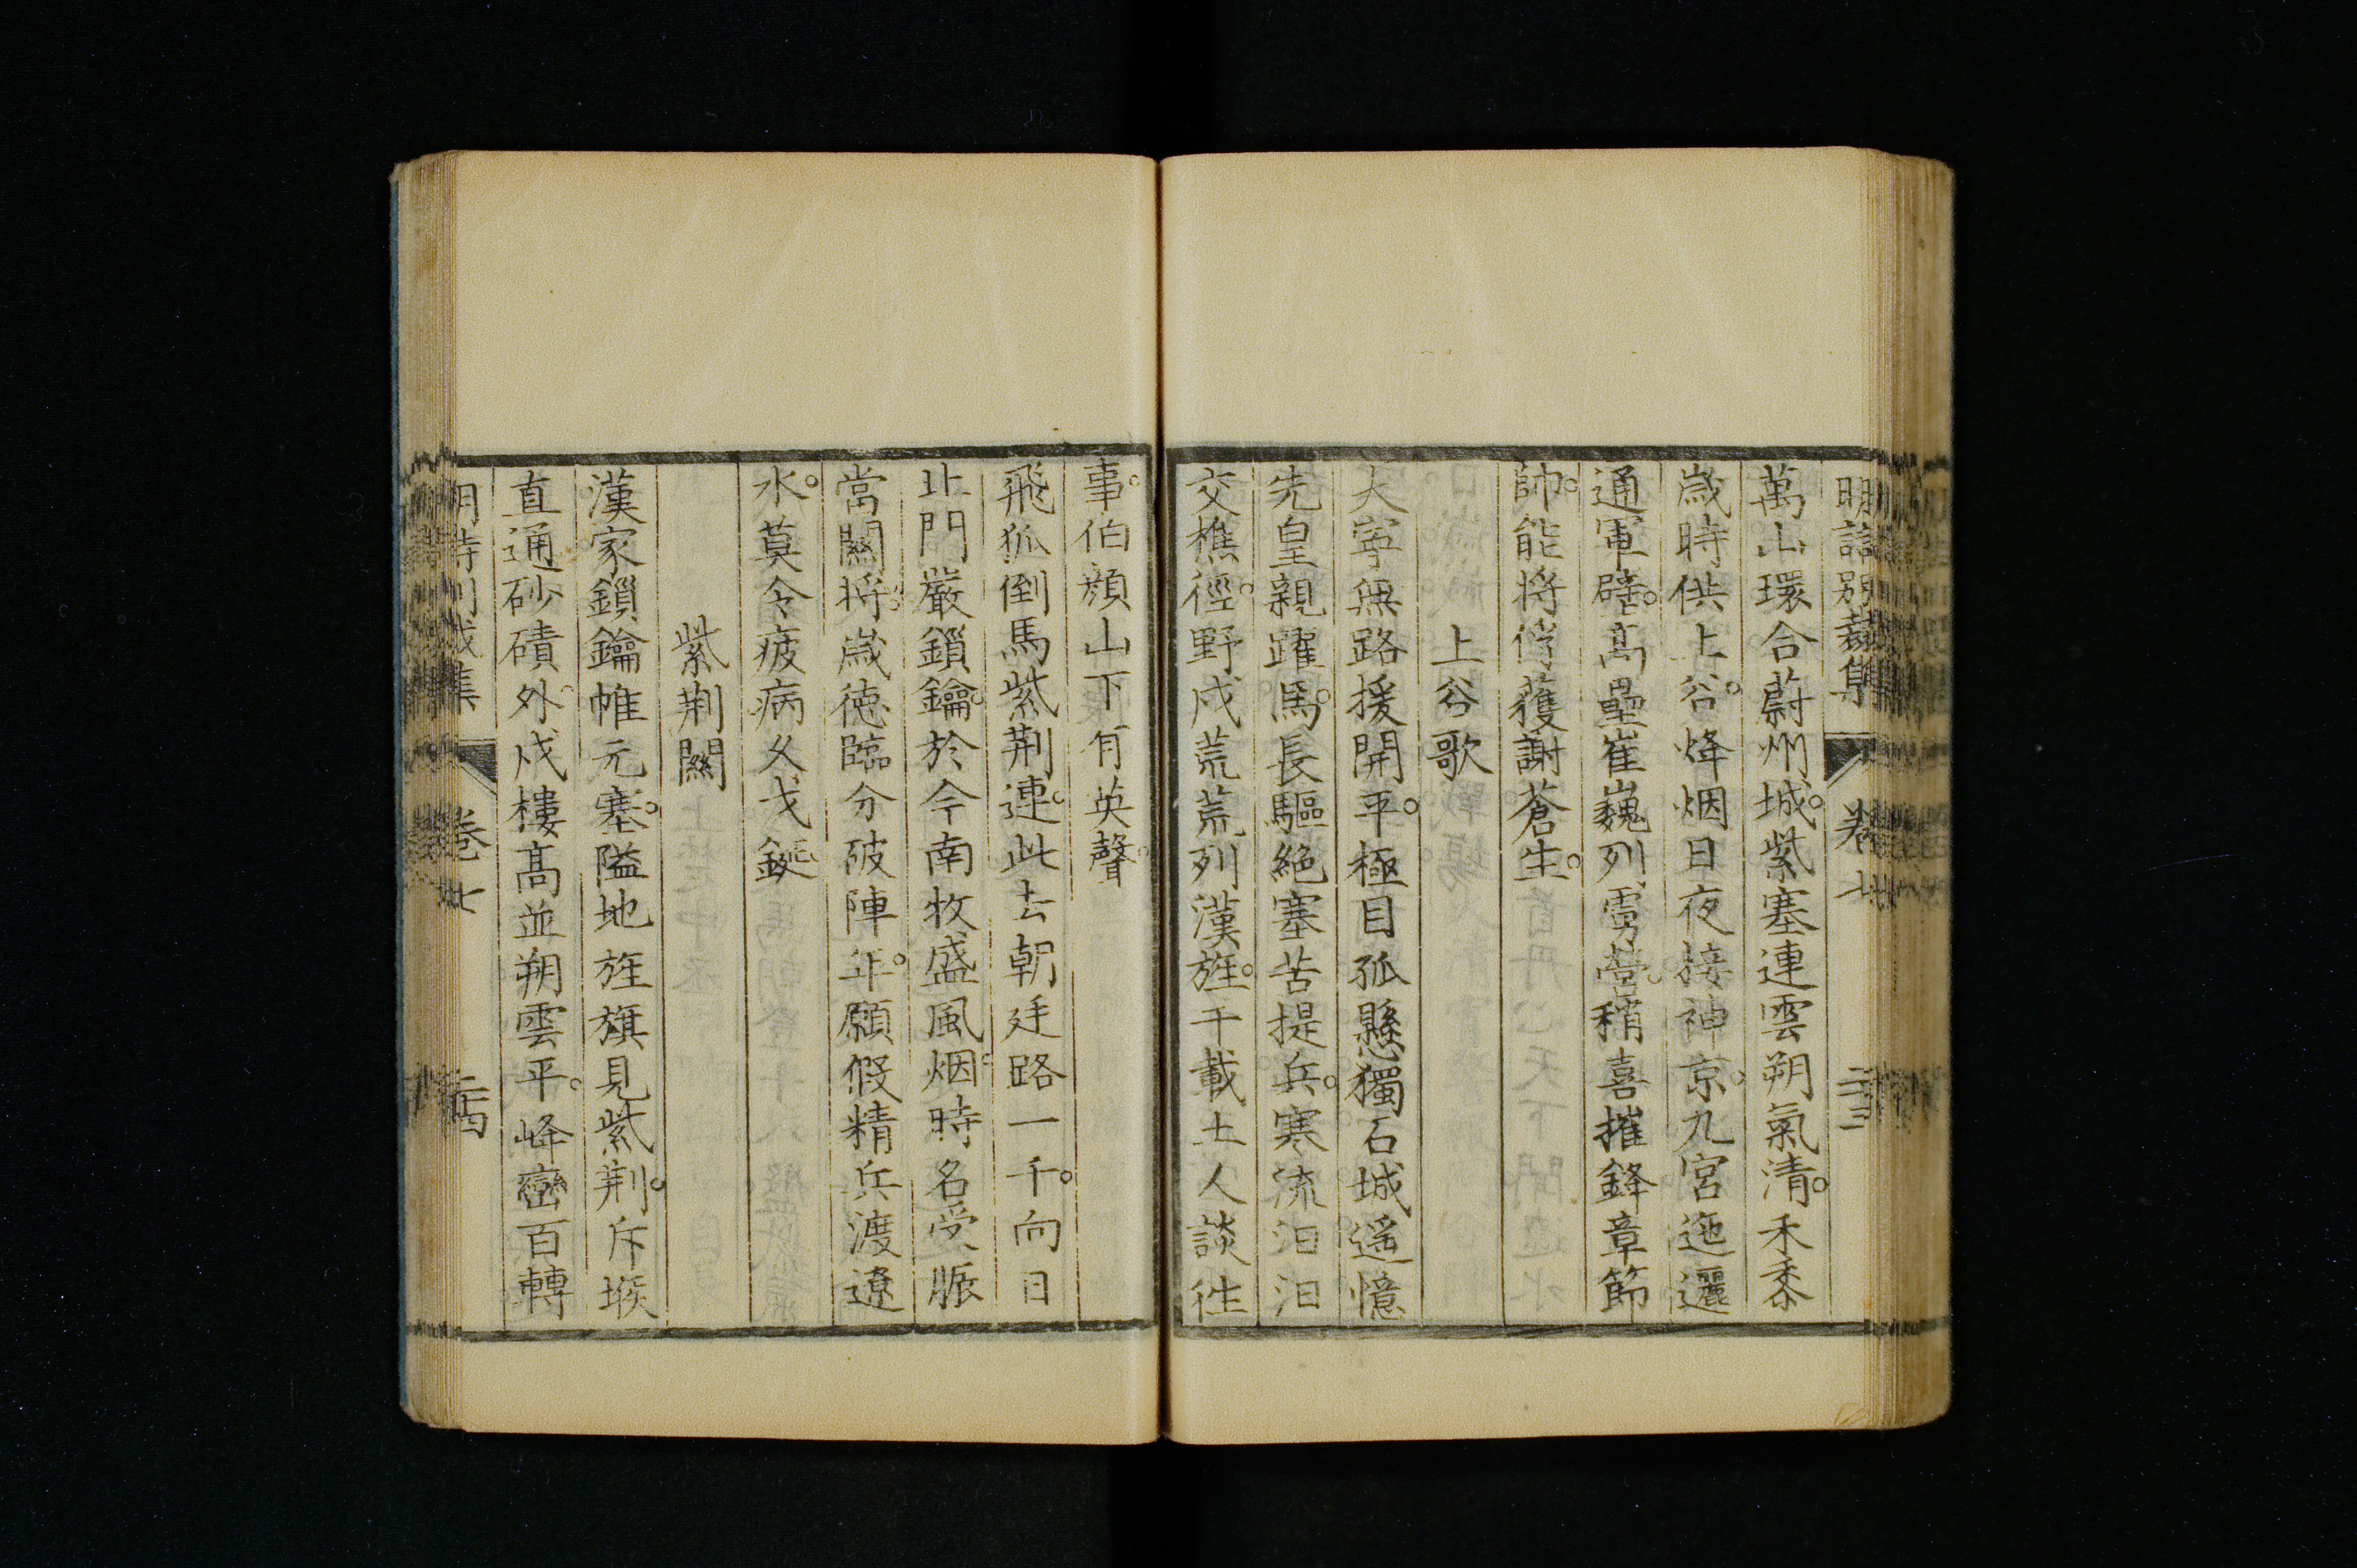 明詩別裁集 卷七 二十三
萬山環合蔚州城。紫塞連雲朔氣清。禾黍
歲時供上谷。烽烟日夜接神京。九宮迤邐
通軍壁。髙壘崔巍列雲營。稍喜摧鋒章節
帥。能將俘獲謝蒼生。
上谷歌
大寧無路援開平。極目孤懸獨石城。遥憶
先皇親躍馬。長驅絶塞苦提兵。寒流汩汩
交樵徑。野戍荒荒列漢旌。千載土人談徃
事。伯顏山下有英聲。
飛狐倒馬紫荆連。此去朝廷路一千。向日
北門嚴鎖鑰。於今南牧盛風烟。時名受脤
當關將。歲德臨分破陣年。願假精兵渡遼
水。莫令疲病久戈鋋
紫荆關
漢家鎖鑰帷元塞。隘地旌旗見紫荆。斥堠
直通砂磧外。戍樓髙並朔雲平。峰巒百轉
明詩別裁集 卷七 二十四